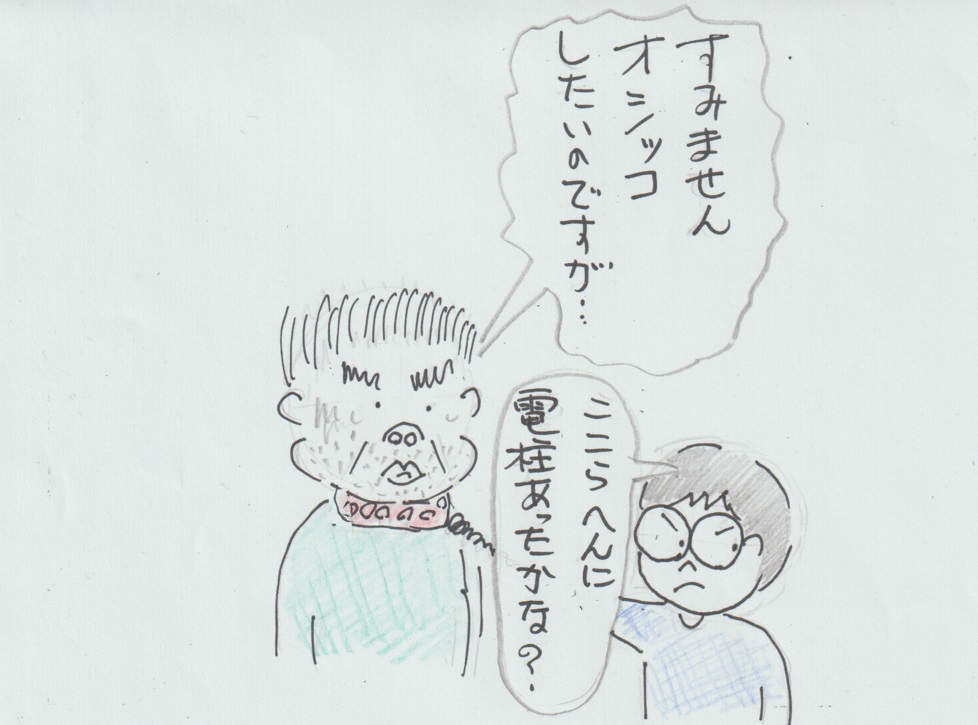 すみません
オシッコ
したいのですが…
ここらへんに
電柱あったかな?